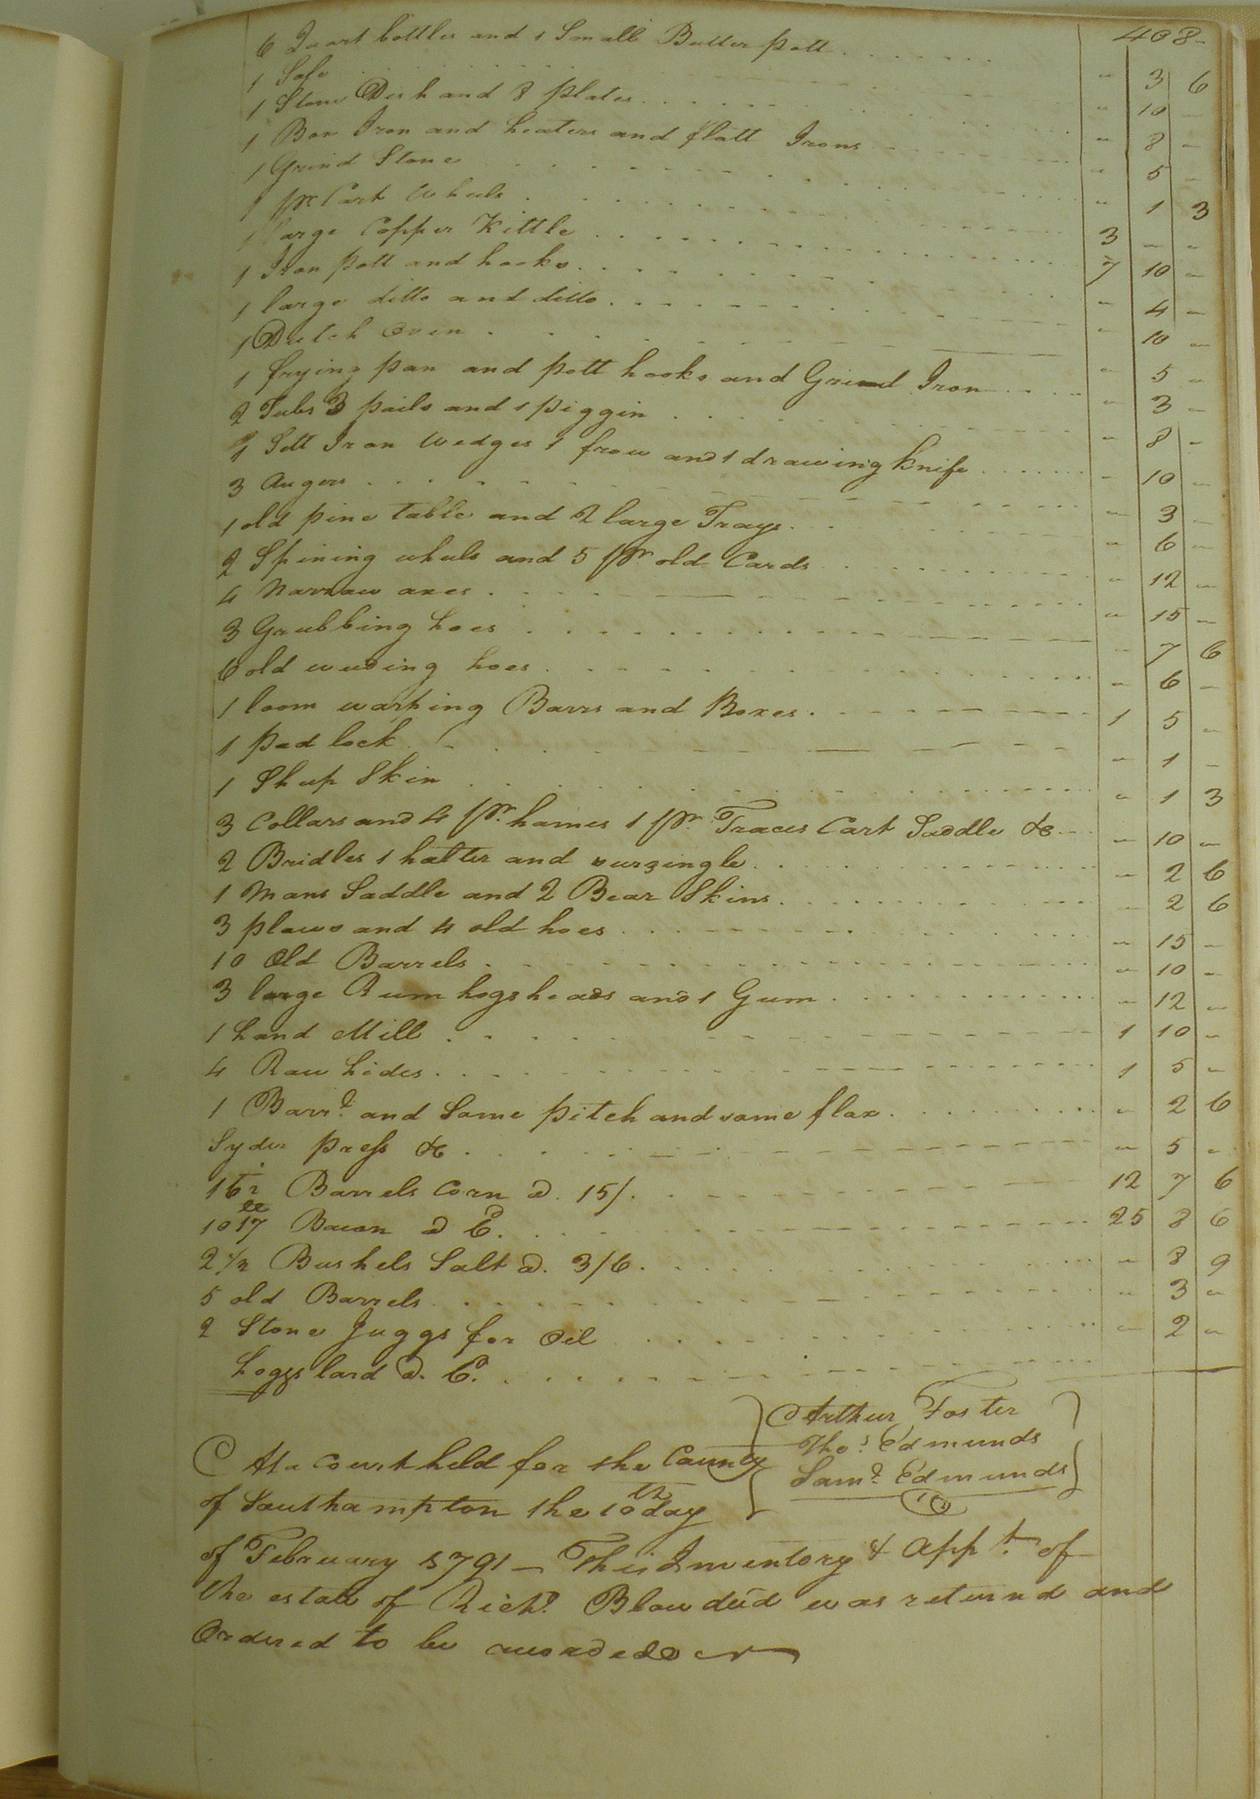 408-
6 Quart bottles and 1 Small Butter pott " 3 6
1 Safe " 10 -
1 Stone Dish and 8 plates " 8 -
1 Box Iron and heaters and flatt Irons " 5 -
1 Grind Stone " 1 3
1 pr Cart Wheels 3 - -
1 large Copper Kittle 7 10 -
1 Iron pott and hooks - 4 -
1 large ditto and ditto - 10 -
1 Dutch Oven - 5 -
1 frying pan and pott hooks and Gri Iron - 3 -
2 Tubs 3 pails and 1 piggin - 8 -
1 Sett Iron Wedges 1 frow and 1 drawing knife - 10 -
3 Augers - 3 -
1 old pine table and 2 large Trays - 6 -
2 Spining wheels and 5 pr old Cards - 12 -
4 Narraw axes - 15 -
3 Grubbing hoes - 7 6
6 old weeding hoes - 6 -
1 loom warping Barrs and Boxes 1 5 -
1 pad lock - 1 -
1 Sheep Skin - 1 3
3 Collars and 4 pr. hames 1 pr Traces Cart Saddle &c - 10 -
2 Bridles 1 halter and surzingle - 2 6
1 Mans Saddle and 2 Bear Skins - 2 6
3 plows and 4 old hoes - 15 -
10 Old Barrels - 10 -
3 large Rum hogsheads and 1 Gum - 12 -
1 hand Mill 1 10 -
4 Raw hides 1 5 -
1 Barrl and Some pitch and some flax - 2 6
Syder press &c - 5 -
16½ Barrels Corn @ 15/. 12 7 6
1017 lb Bacon @ 6d. 25 8 6
2½ Bushels Salt @ 3/6 - 8 9
5 old Barrels - 3 -
2 Stone Juggs for Oil - 2 -
hoggs lard @ 6d.
Arthur Foster
Thos Edmunds
Saml Edmunds
At a court held for the County
of Southampton the 10th day
of February 1791 - This Inventory & Appt. of
the estate of Richd Blow decd was returnd and
Ordered to be recorded